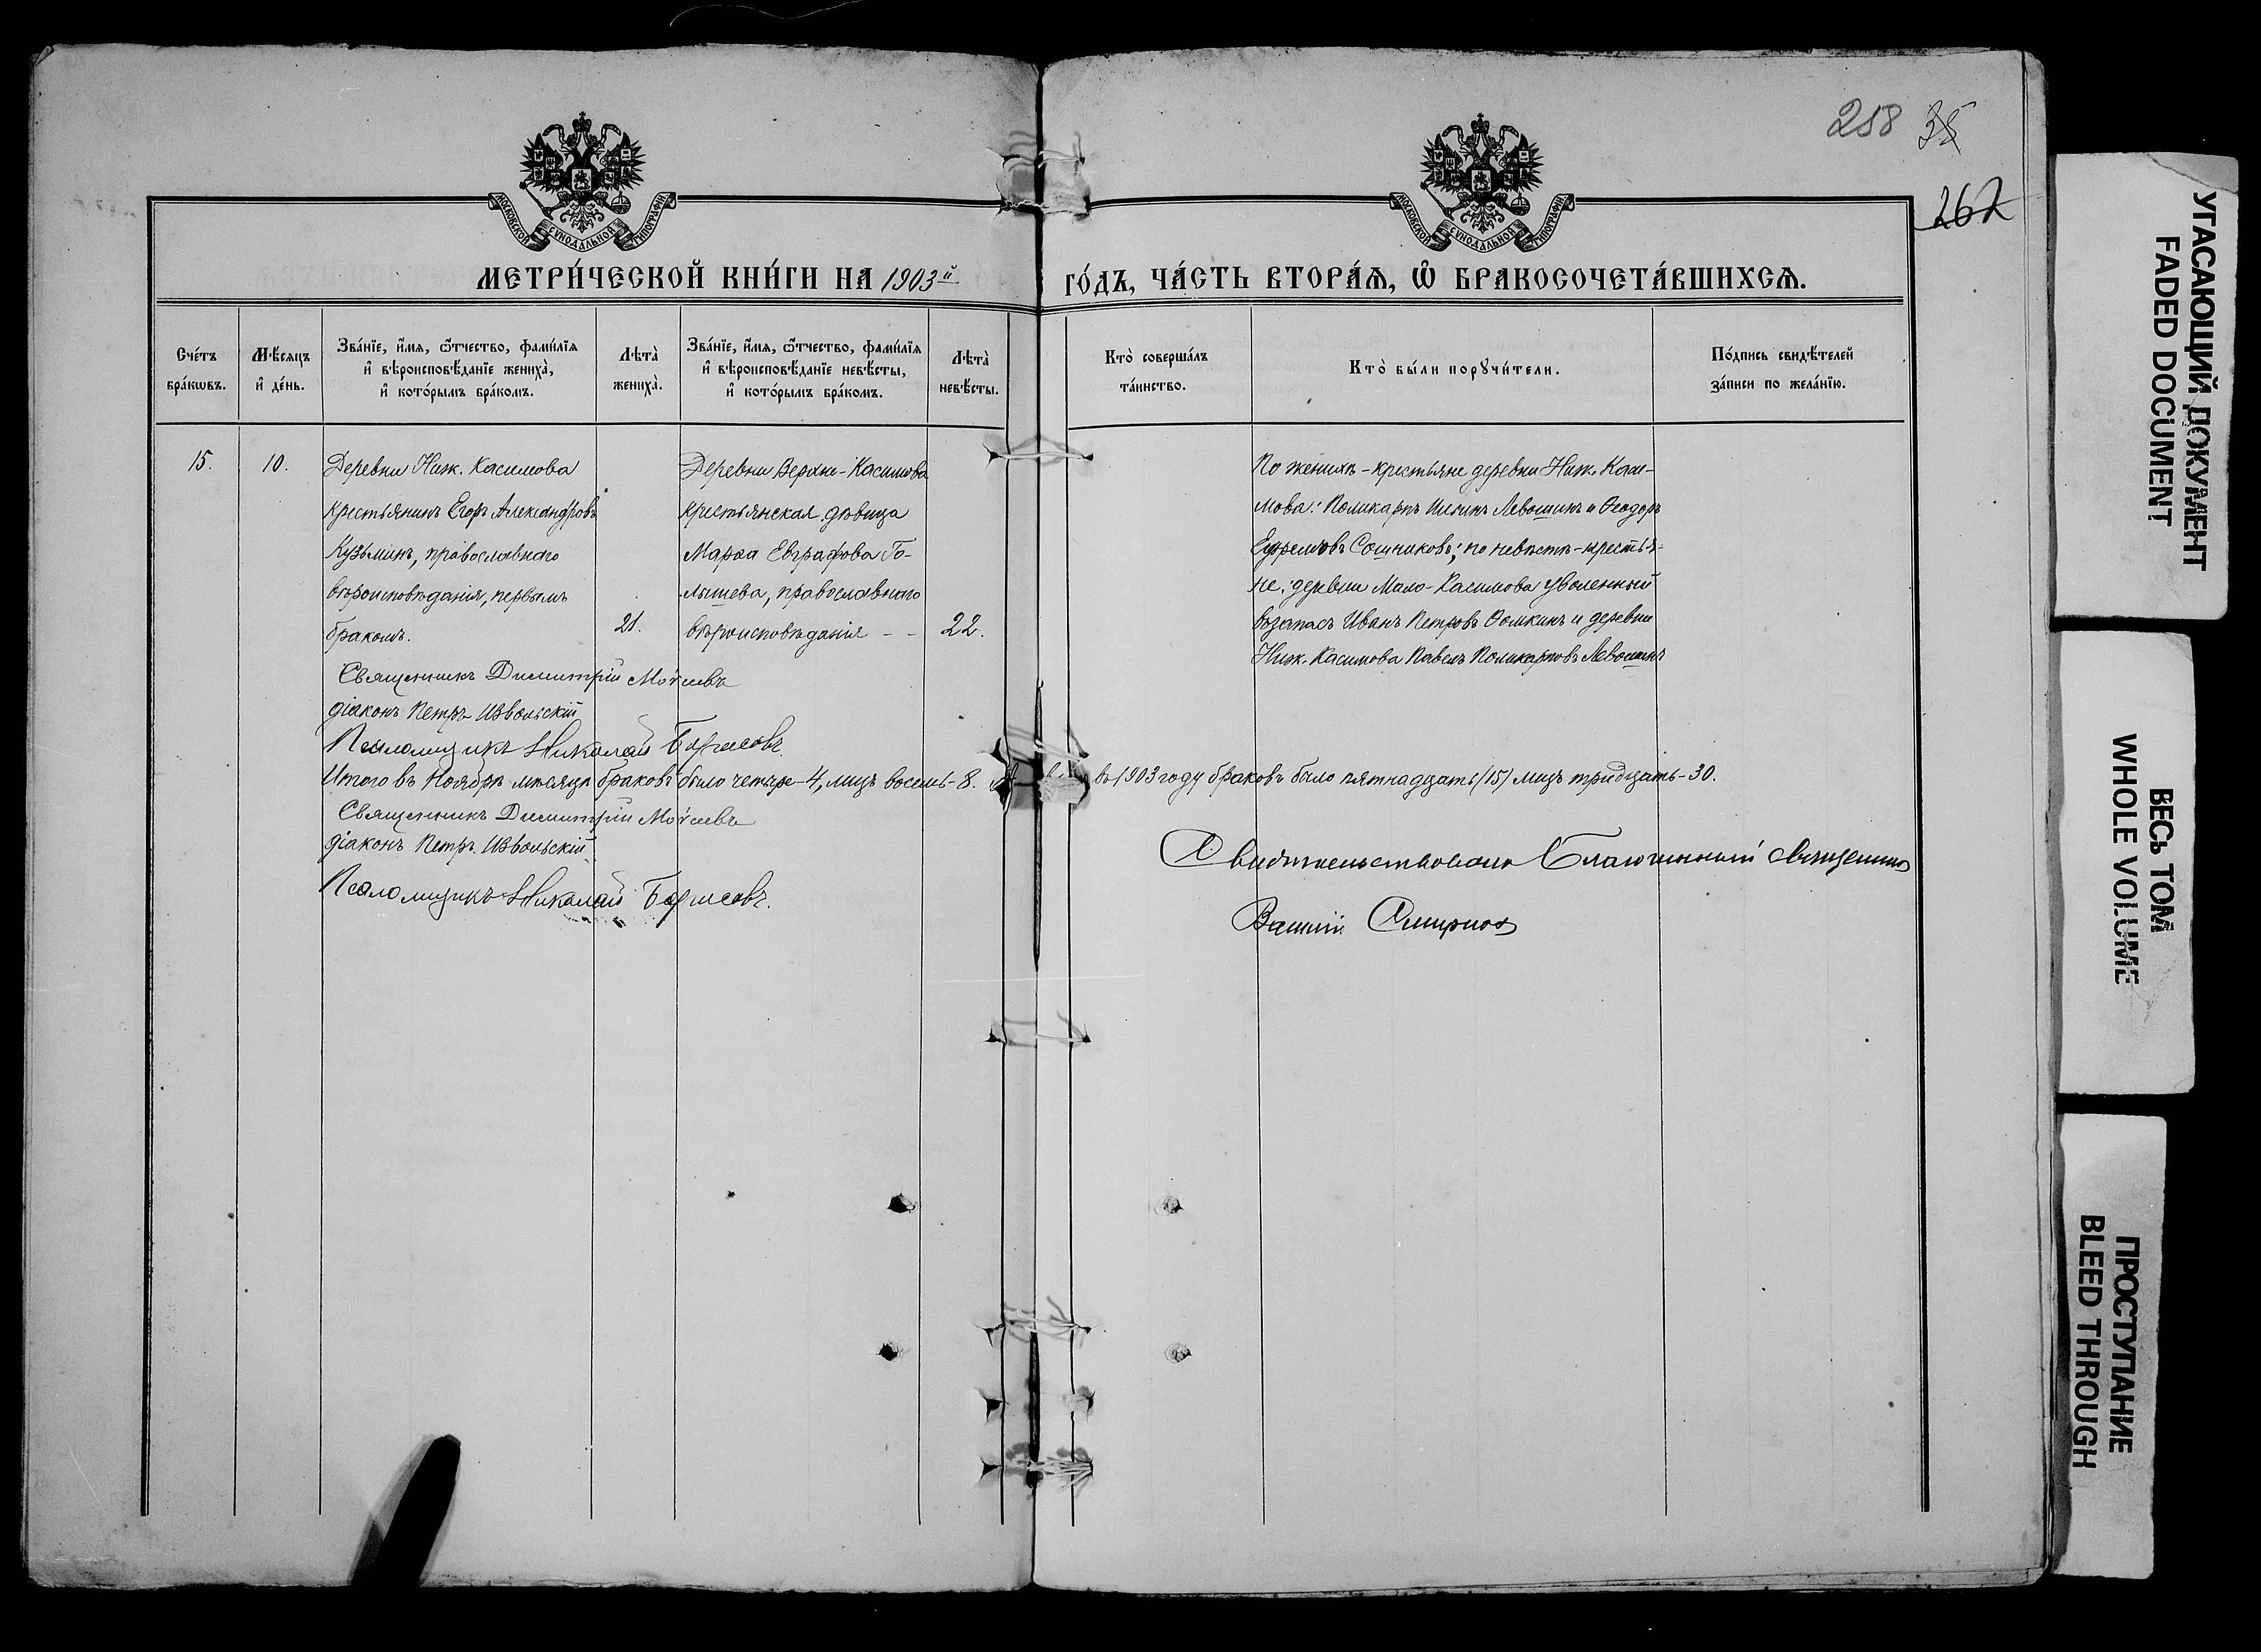 258 35
262
МОСКОВСКОЙ СѴНОДАЛЬНОЙ ТИПОГРАФІИ
МОСКОВСКОЙ СѴНОДАЛЬНОЙ ТИПОГРАФІИ
МЕТРИ́ЧЕСКОЙ КНИ́ГИ НА 1903й ГО́ДЪ, ЧА́СТЬ ВТОРА́Ѧ, Ѽ БРАКОСОЧЕТА́ВШИХСѦ.
Сче́тъ
бра́кѡвъ.
Мѣ́сяцъ
и҆ де́нь.
Зва́нїе, и҆́мѧ, ѻ҆́тчество, фами́лїѧ
и҆ вѣроисповѣ́данїе жениха̀,
и҆ кото́рымъ бра́комъ.
Лѣта̀
жениха̀.
Зва́нїе, и҆́мѧ, ѻ҆́тчество, фами́лїѧ
и҆ вѣроисповѣ́данїе невѣ́сты,
и҆ кото́рымъ бра́комъ.
Лѣта̀
невѣ́сты.
Кто̀ соверша́лъ
та́инство.
Кто̀ бы́ли порꙋчи́тели.
По́дпись свидѣ́телей
за́писи по жела́нїю.
15.
10.
Деревни Ниж. Касимова
крестьянинъ Егоръ Александровъ
Кузьминъ, православнаго
вѣроисповѣданія, первымъ
бракомъ.
21.
Деревни Верхне-Касимова
крестьянская дѣвица
Марѳа Евграфова Го-
лышева, православнаго
вѣроисповѣданія - -
22.
По женихѣ - крестьяне деревни Ниж. Каси-
мова: Поликарпъ Левошинъ и Ѳеодоръ
Ефремовъ Сошниковъ; по невѣстѣ - крестья-
не: деревни Мало-Касимова уволенный
въ запасъ Иванъ Петровъ Ѳомкинъ и деревни
Ниж. Касимова Павелъ Поликарповъ Левошинъ
Священникъ Димитрій
діаконъ Петръ Извольскій
Псаломщикъ Николай Борисовъ.
Итого въ Ноябрѣ мѣсяцѣ браковъ было четыре - 4, лицъ восемь - 8. въ 1903 году браковъ было пятнадцать (15) лицъ тридцать - 30.
Священникъ Димитрій
діаконъ Петръ Извольскій
Псаломщикъ Николай Борисовъ.
Свидѣтельствовалъ Благочинный Священникъ
Василій Смирновъ
УГАСАЮЩИЙ ДОКУМЕНТ
FADED DOCUMENT
ВЕСЬ ТОМ
WHOLE VOLUME
ПРОСТУПАНИЕ
BLEED THROUGH